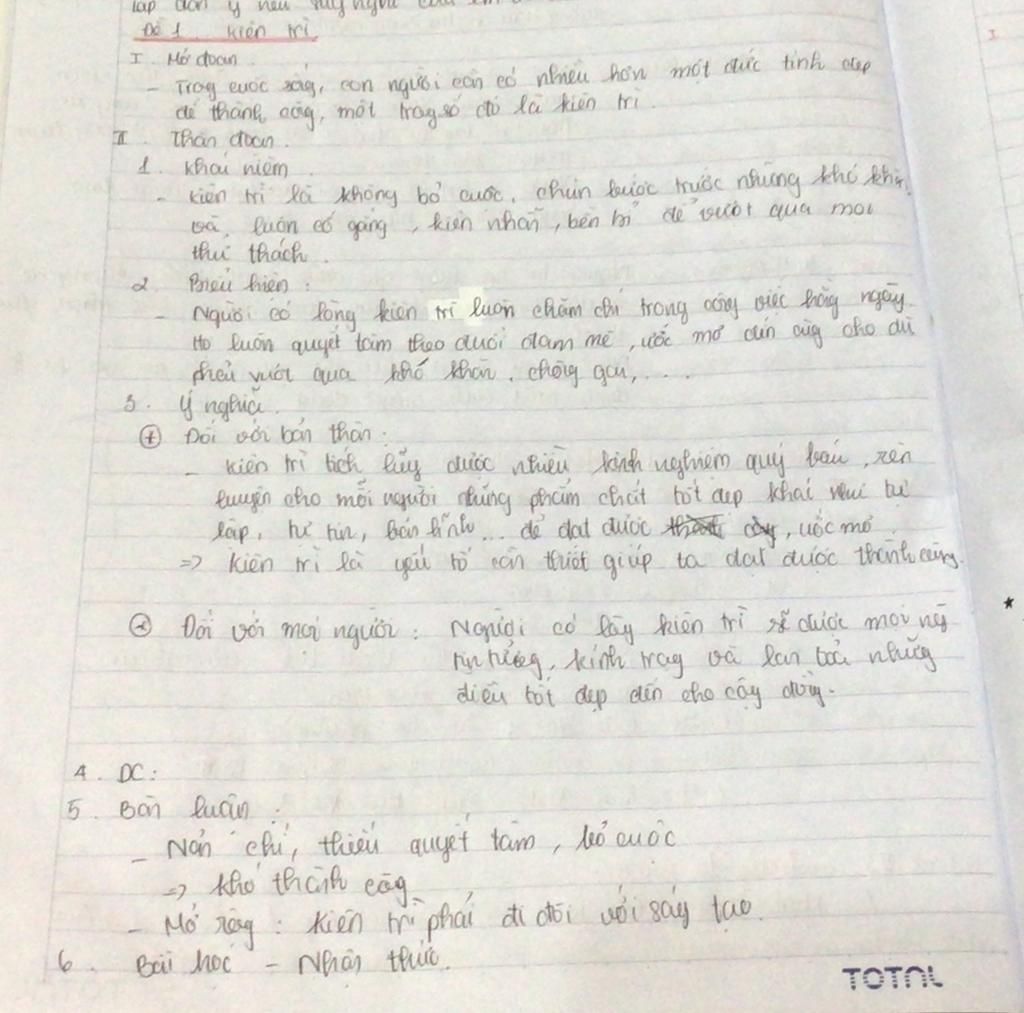 lập dàn ý nêu suy nghĩ của em
Đề 1 kiên trì
I. Mở đoạn.
- Trog cuộc sốg, con người cần có nhiều hơn một đức tính đẹp
để thành côg, một trog số đó là kiên trì.
II. Thân đoạn.
1. Khái niệm
- Kiên trì là không bỏ cuộc, chùn bước trước những khó khăn.
và luôn cố gắng, kiên nhẫn, bền bỉ để vượt qua mọi
thử thách.
2. Biểu hiện:
- Người có lòng kiên trì luôn chăm chỉ trong công việc hằng ngày.
Họ luôn quyết tâm theo đuổi đam mê, ước mơ đến cùg cho dù
phải vượt qua khó khăn, chông gai,....
3. Ý nghĩa.
+ Đối với bản thân:
- kiên trì tích lũy được nhiều kinh nghiệm quý báu, rèn
luyện cho mỗi người những phẩm chất tốt đẹp khác như tự
lập, tự tin, bản lĩnh... để đạt được ước mơ
=> kiên trì là yếu tố cần thiết giúp ta đạt được thành công.
Đối với mọi người: Người có lòg kiên trì sẽ được mọi ng
tin tưởng, kính trọg và lan toả những
điều tốt đẹp đến cho cộg đồng.
4. DC:
5. Bàn luận:
- Nản chí, thiếu quyết tâm, bỏ cuộc
=> khó thành côg
- Mở rộg: kiên trì phải đi đôi với ság tạo.
6. Bài học - Nhận thức.
TOTAL
I
★